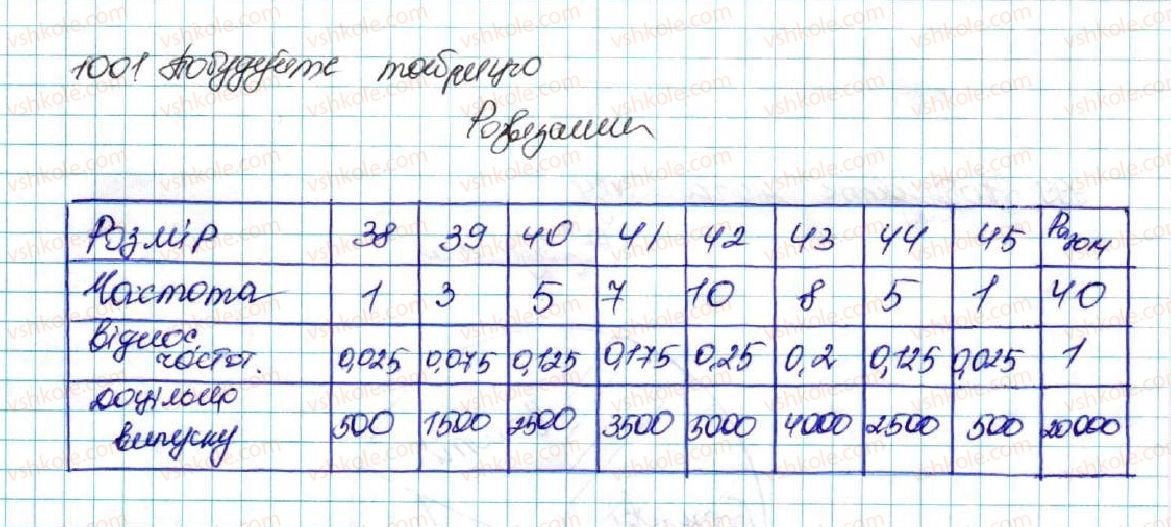 1001 Побудуйте таблицю
Розв'язання
Розмір 38 39 40 41 42 43 44 45 Разом
Частота 1 3 5 7 10 8 5 1 40
Віднос. частот. 0,025 0,075 0,125 0,175 0,25 0,2 0,125 0,025 1
Доцільно випуску 500 1500 2500 3500 5000 4000 2500 500 20000
vshkole.com